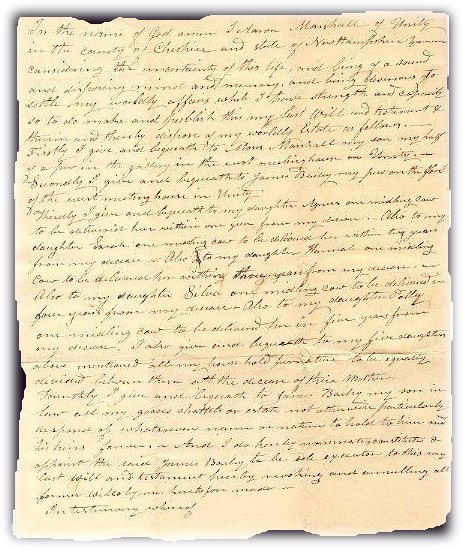 In the name of God amen I Aaron Marshall of Unity
in the county of Cheshire and state of New Hampshire Yeoman
considering the uncertainty of this life, and being of a sound
and disposing mind and memory, and being desirous of
settle my worldly affairs whilst I have strength and capacity
so to do make and publish this my last Will and testament &
therein and thereby dispose of my worldly Estate as follows. —
Firstly I give and bequeath to Moses Marshall my son my half
of a pew in the gallery in the west meetinghouse in Unity. —
Secondly I give and bequeath to James Bailey my pew on the floor
of the west meetinghouse in Unity.
Thirdly I give and bequeath to my daughter Agnes one midling cow
to be delivered her within one year from my decease. Also to my
daughter Sarah one midling cow to be delivered her within two years
from my decease — Also to my daughter Hannah one midling
cow to be delivered her within three years from my decease. —
Also to my daughter Silva one midling cow to be delivered in
four years from my decease — Also to my daughter Polly
one midling cow to be delivered her in five years from
my decease. I also give and bequeath to my five daughters
above mentioned all my household furniture to be equally
divided between them att the decease of their Mother.
Fourthly I give and bequeath to James Bailey my son in
law all my goods chattels or estate not otherwise particularly
disposed of whatsoever name or nature to hold to him and
his heirs forever — And I do hereby nominate constitute &
appoint the said James Bailey to be sole executor to this my
last will and testament hereby revoking and annulling all
former wills by me heretofore made —
In testimony whereof